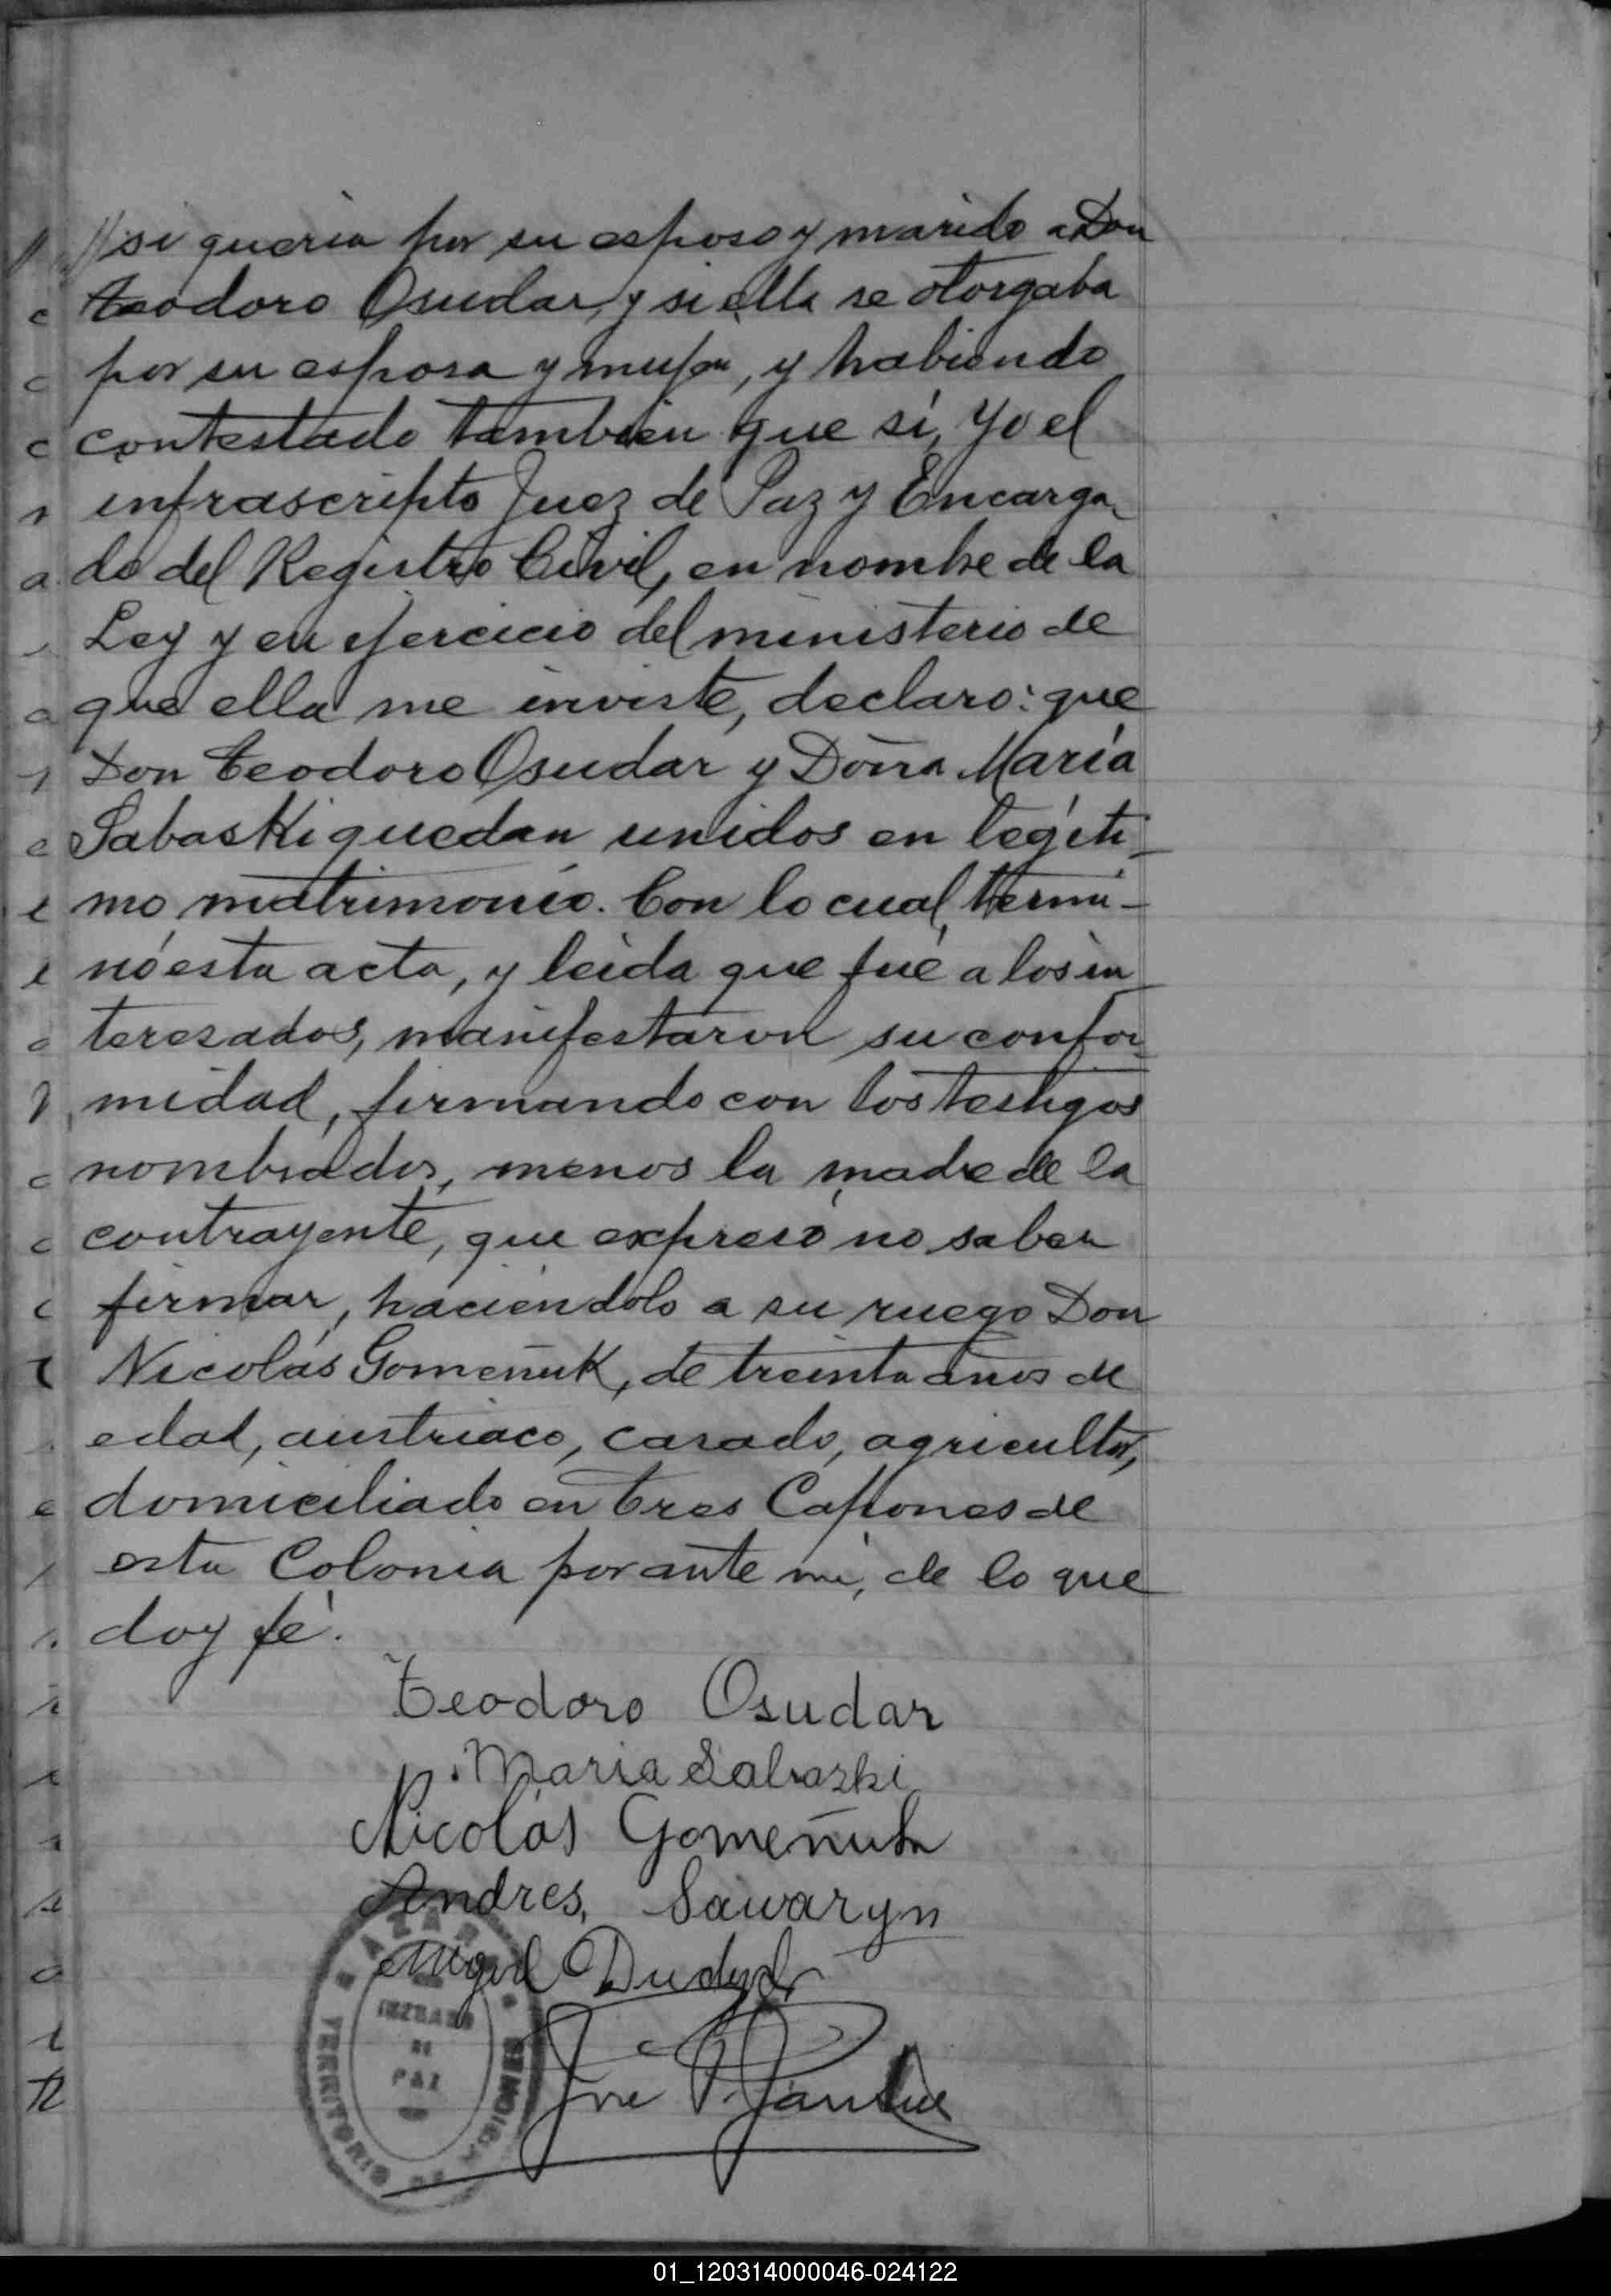 //si queria por su esposo y marido a Don
Teodoro Osudar, y si ella se otorgaba
por su esposa y mujer, y habiendo
contestado tambien que sí, Yo el
infrascripto Juez de Paz y Encarga-
do del Registro Civil, en nombre de la
Ley y en ejercicio del ministerio de
que ella me inviste, declaro: que
Don Teodoro Osudar y Doña María
Sabaski quedan unidos en legíti-
mo matrimonio. Con lo cual, termi-
nó esta acta, y leida que fué a los in-
teresados, manifestaron su confor-
midad, firmando con los testigos
nombrados, menos la madre de la
contrayente, que expresó no saber
firmar, haciendolo a su ruego Don
Nicolás Gomeñuk, de treinta años de
edad, austriaco, casado, agricultor,
domiciliado en Tres Capones de
esta Colonia por ante mi, de lo que
doy fé.
Teodoro Osudar
Maria Sabaski
Nicolás Gomeñuk
Andres Sawaryn
Miguel
José
JUZGADO
DE
PAZ
TERRITORIO
MISIONES
01_120314000046-024122